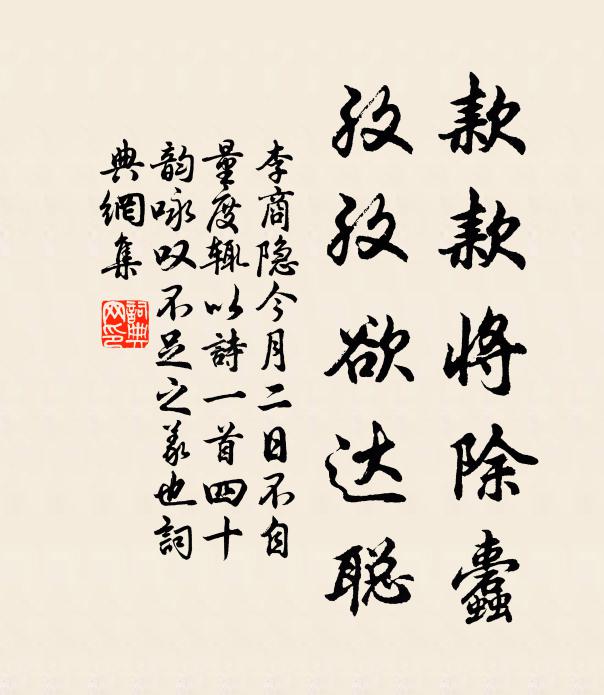 款款将除蠹
孜孜欲达聪
李商隐今月二日不自
量度辄以詩一首四十
韵咏叹不足之義也詞
典網集
詞典
网印